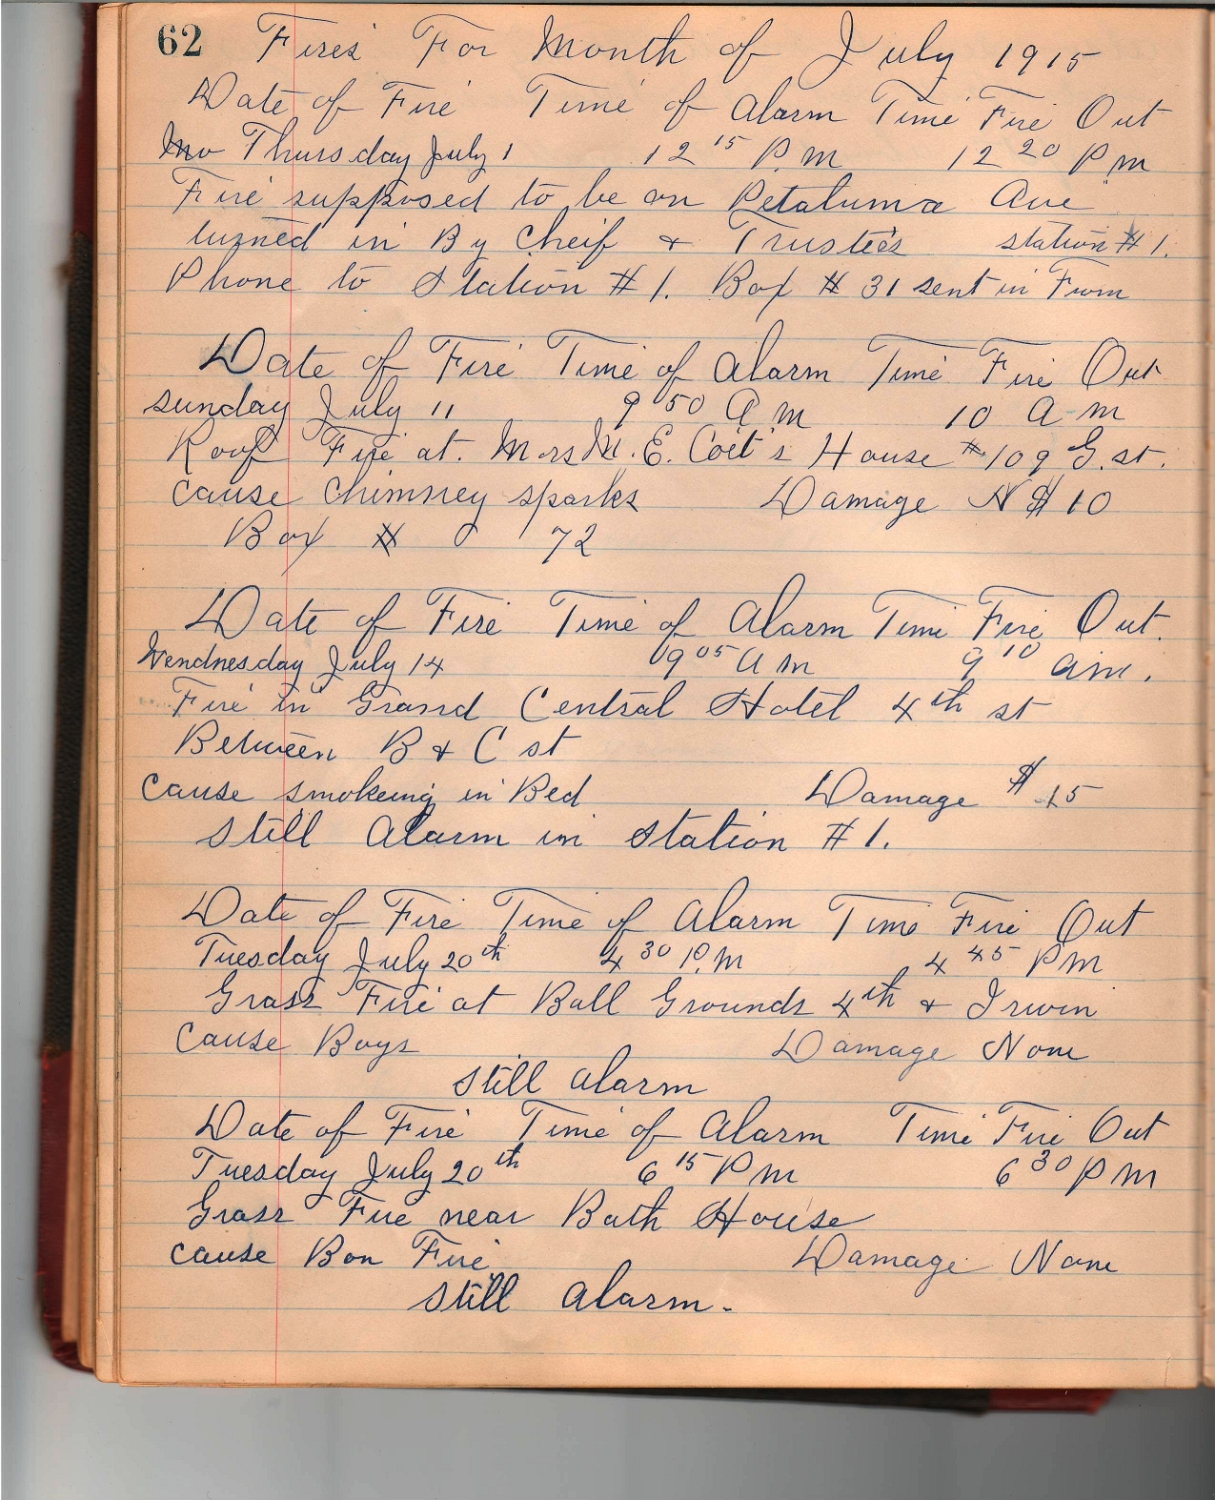 62 Fires For Month of July 1915
Date of Fire Time of Alarm Time Fire Out
Mo Thursday July 1 12 15 P.M 12 20 P M
Fire supposed to be on Petaluma Ave
turned in By Cheif & Trustees station # 1.
Phone to Station # 1. Box # 31 sent in From
Date of Fire Time of Alarm Time Fire Out
Sunday July 11 9 50 A M 10 A M
Roof Fire at. Mrs M. E. Coit's House # 109 G. st.
cause chimney sparks Damage N $ 10
Box # 72
Date of Fire Time of Alarm Time Fire Out.
Wendnesday July 14 9 05 A M 9 10 am.
Fire in Grand Central Hotel 4th st
Between B & C st
cause smokeing in Bed Damage $ 15
Still Alarm in Station # 1.
Date of Fire Time of Alarm Time Fire Out
Tuesday July 20th 4 30 P.M 4 45 P M
Grass Fire at Ball Grounds 4th & Irwin
Cause Boys Damage None
Still Alarm
Date of Fire Time of Alarm Time Fire Out
Tuesday July 20th 6 15 P M 6 30 P M
Grass Fire near Bath House
cause Bon Fire Damage None
Still Alarm.